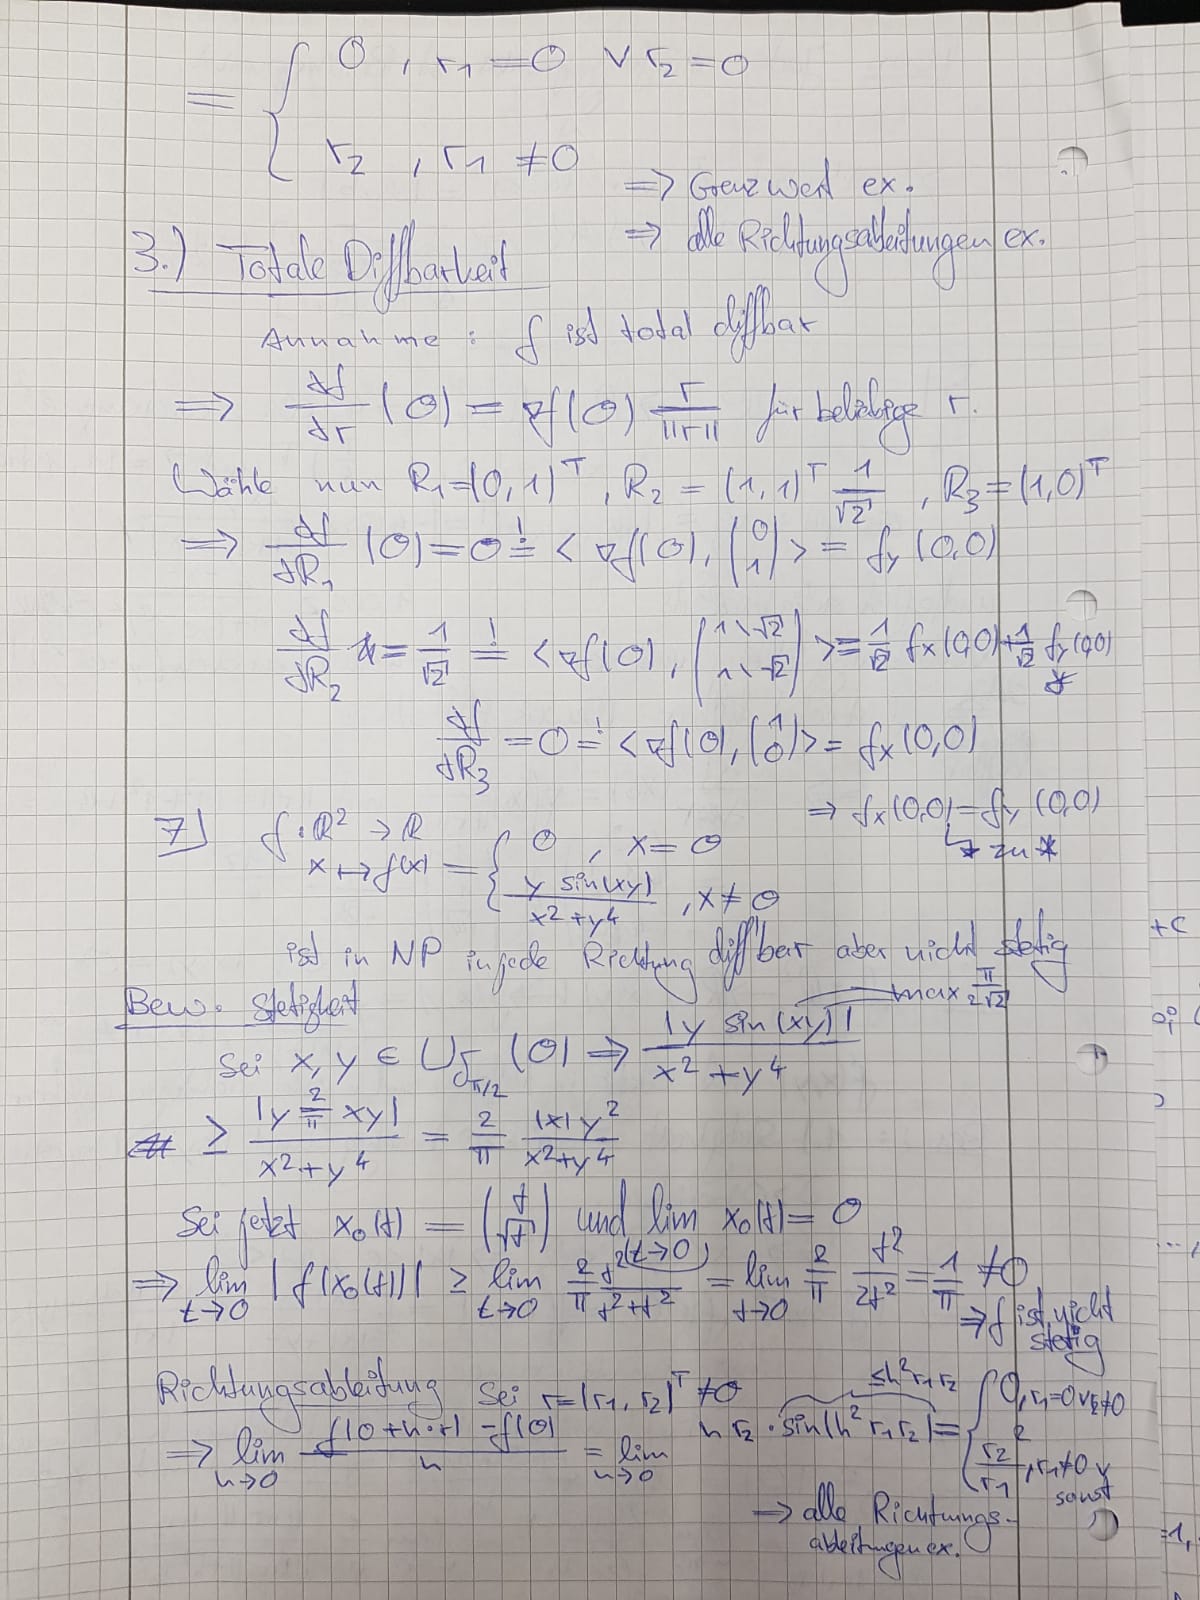 = { 0 , r₁ = 0 ∨ r₂ = 0
r₂ , r₁ ≠ 0
⇒ Grenzwert ex.
⇒ alle Richtungsableitungen ex.
3.) Totale Diffbarkeit
Annahme : f ist total diffbar
⇒ df/dr (0) = ∇f(0) r/||r|| für beliebige r.
Wähle nun R₁=(0,1)ᵀ, R₂ = (1,1)ᵀ 1/√2 , R₃=(1,0)ᵀ
⇒ df/dR₁ (0) = 0 =! <∇f(0), (0 1)> = fy (0,0)
df/dR₂ = 1/√2 =! <∇f(0), (1\√2 1\√2)> = 1/√2 fx(0,0)+1/√2 fy(0,0)
*
df/dR₃ = 0 =! <∇f(0), (1 0)> = fx (0,0)
⇒ fx(0,0)=fy (0,0)
↯ zu *
7) f: ℝ² → ℝ
x ↦ f(x) = { 0 , x = 0
y sin(xy) / x²+y⁴ , x ≠ 0
ist in NP in jede Richtung diff'bar aber nicht stetig
Bew. Stetigkeit
max π/2√2
Sei x, y ∈ U_δπ/2 (0) ⇒ |y sin(xy)| / x²+y⁴
≥ |y 2/π xy| / x²+y⁴ = 2/π |x|y² / x²+y⁴
Sei jetzt x₀(t) = (t √t) und lim x₀(t) = 0
(t→0)
⇒ lim t→0 |f(x₀(t))| ≥ lim t→0 2/π t²/t²+t² = lim t→0 2/π t²/2t² = 1/π ≠ 0
⇒ f ist nicht
stetig
Richtungsableitung Sei r=(r₁, r₂)ᵀ ≠ 0
≤h²r₁r₂
⇒ lim h→0 f(0+h·r) - f(0) / h = lim h→0 h r₂ · sin(h² r₁r₂) = { 0, r₁=0 ∨ r₂≠0
r₂²/r₁ , r₁≠0 ∨
sonst
⇒ alle Richtungs-
ableitungen ex.